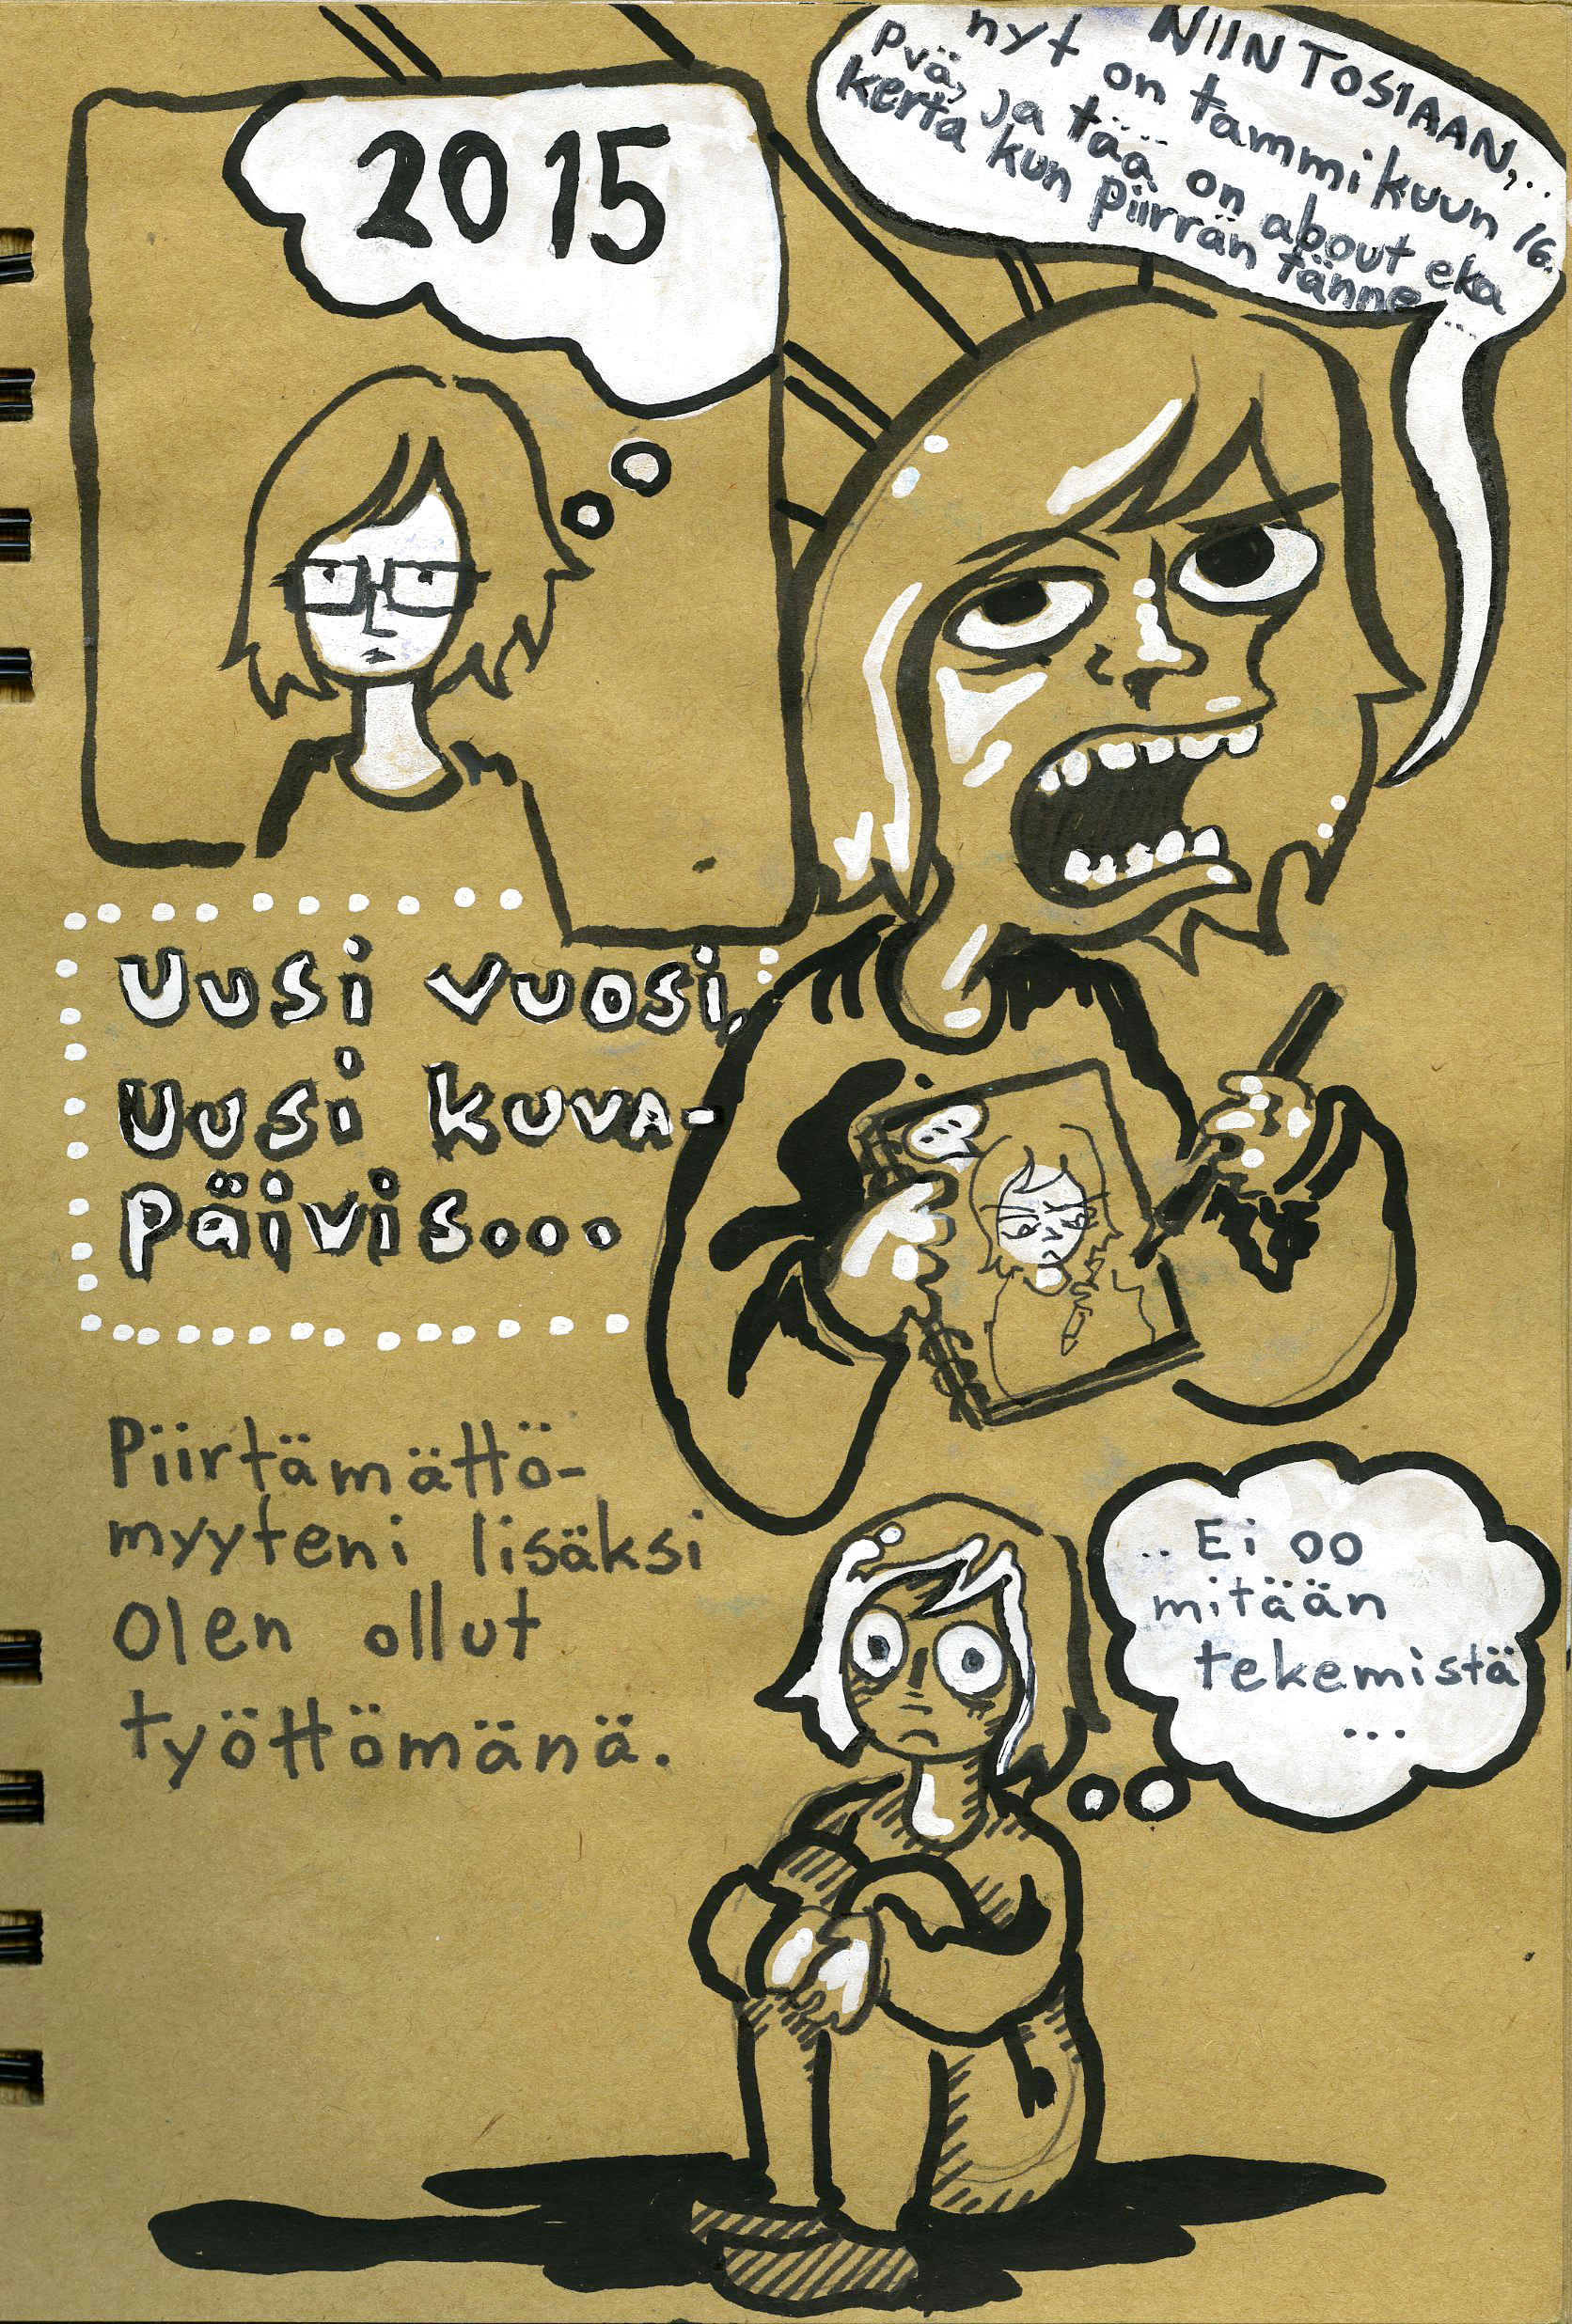 2015
NIIN TOSIAAN,..
nyt on tammikuun 16.
pvä, ja tää on about eka
kerta kun piirrän tänne...
Uusi vuosi,
Uusi kuva-
päivis...
Piirtämättö-
myyteni lisäksi
olen ollut
työttömänä.
.. Ei oo
mitään
tekemistä
...